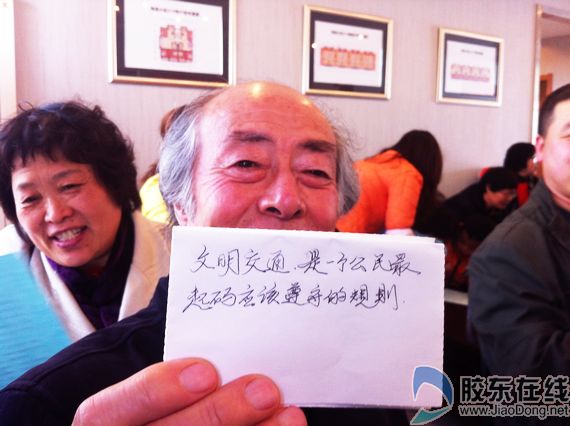 文明交通、是一个公民最
起码应该遵守的规则.
胶东在线
www.JiaoDong.net